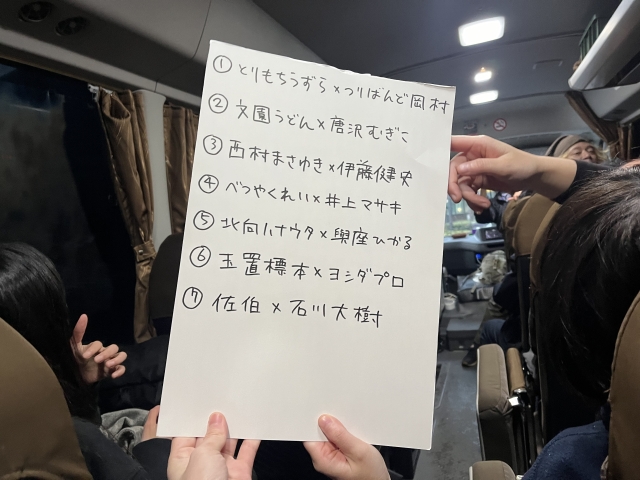 ① とりもちうずら×つりばんど岡村
② 文園うどん×唐沢むぎこ
③ 西村まさゆき×伊藤健史
④ べつやくれい×井上マサキ
⑤ 北向ハナウタ×與座ひかる
⑥ 玉置標本×ヨシダプロ
⑦ 佐伯×石川大樹